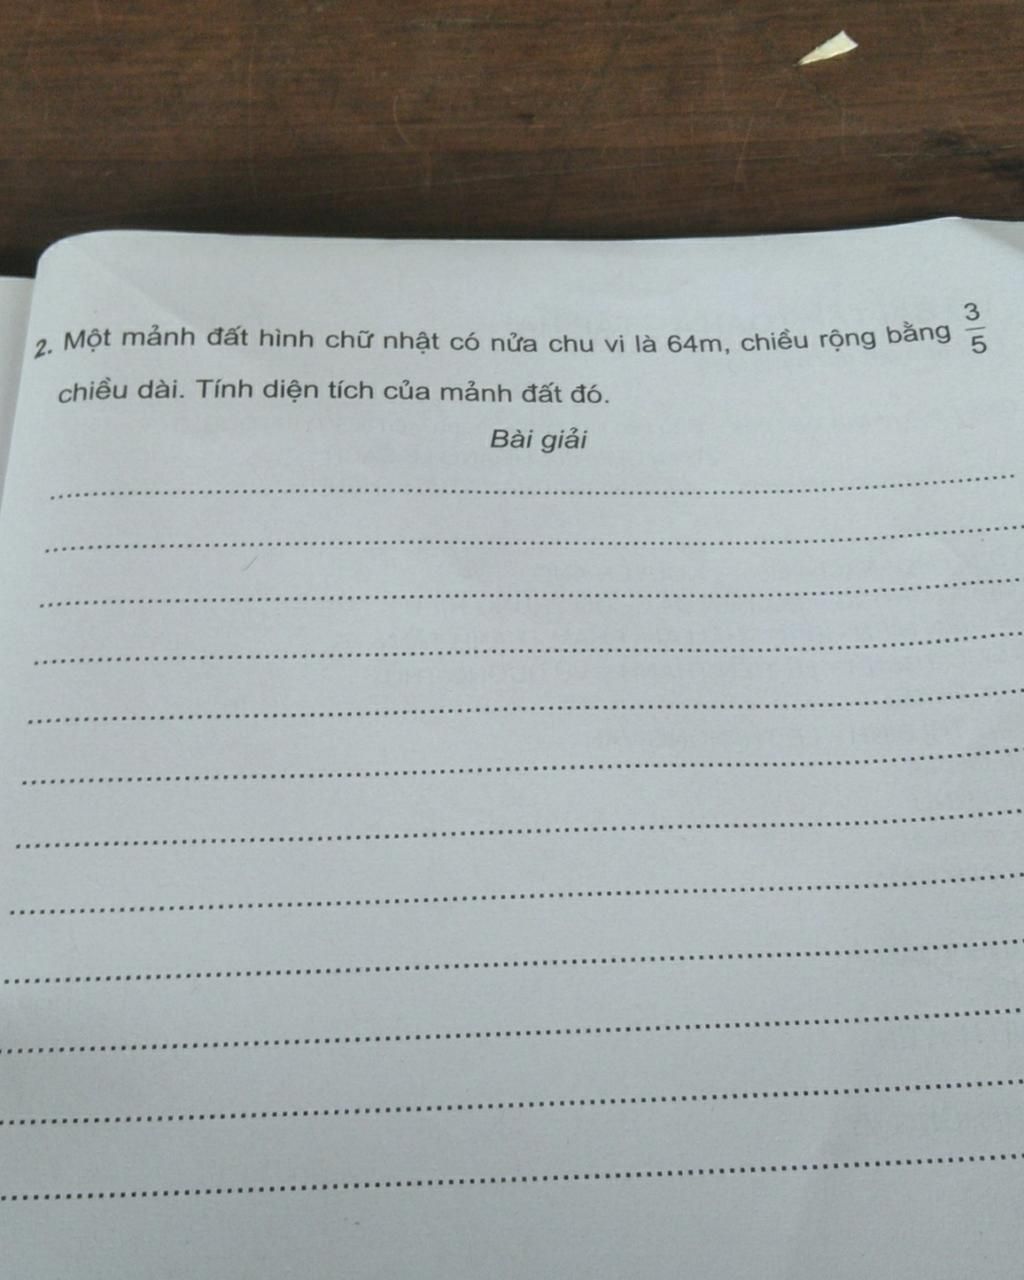 2. Một mảnh đất hình chữ nhật có nửa chu vi là 64m, chiều rộng bằng 3/5
chiều dài. Tính diện tích của mảnh đất đó.
Bài giải